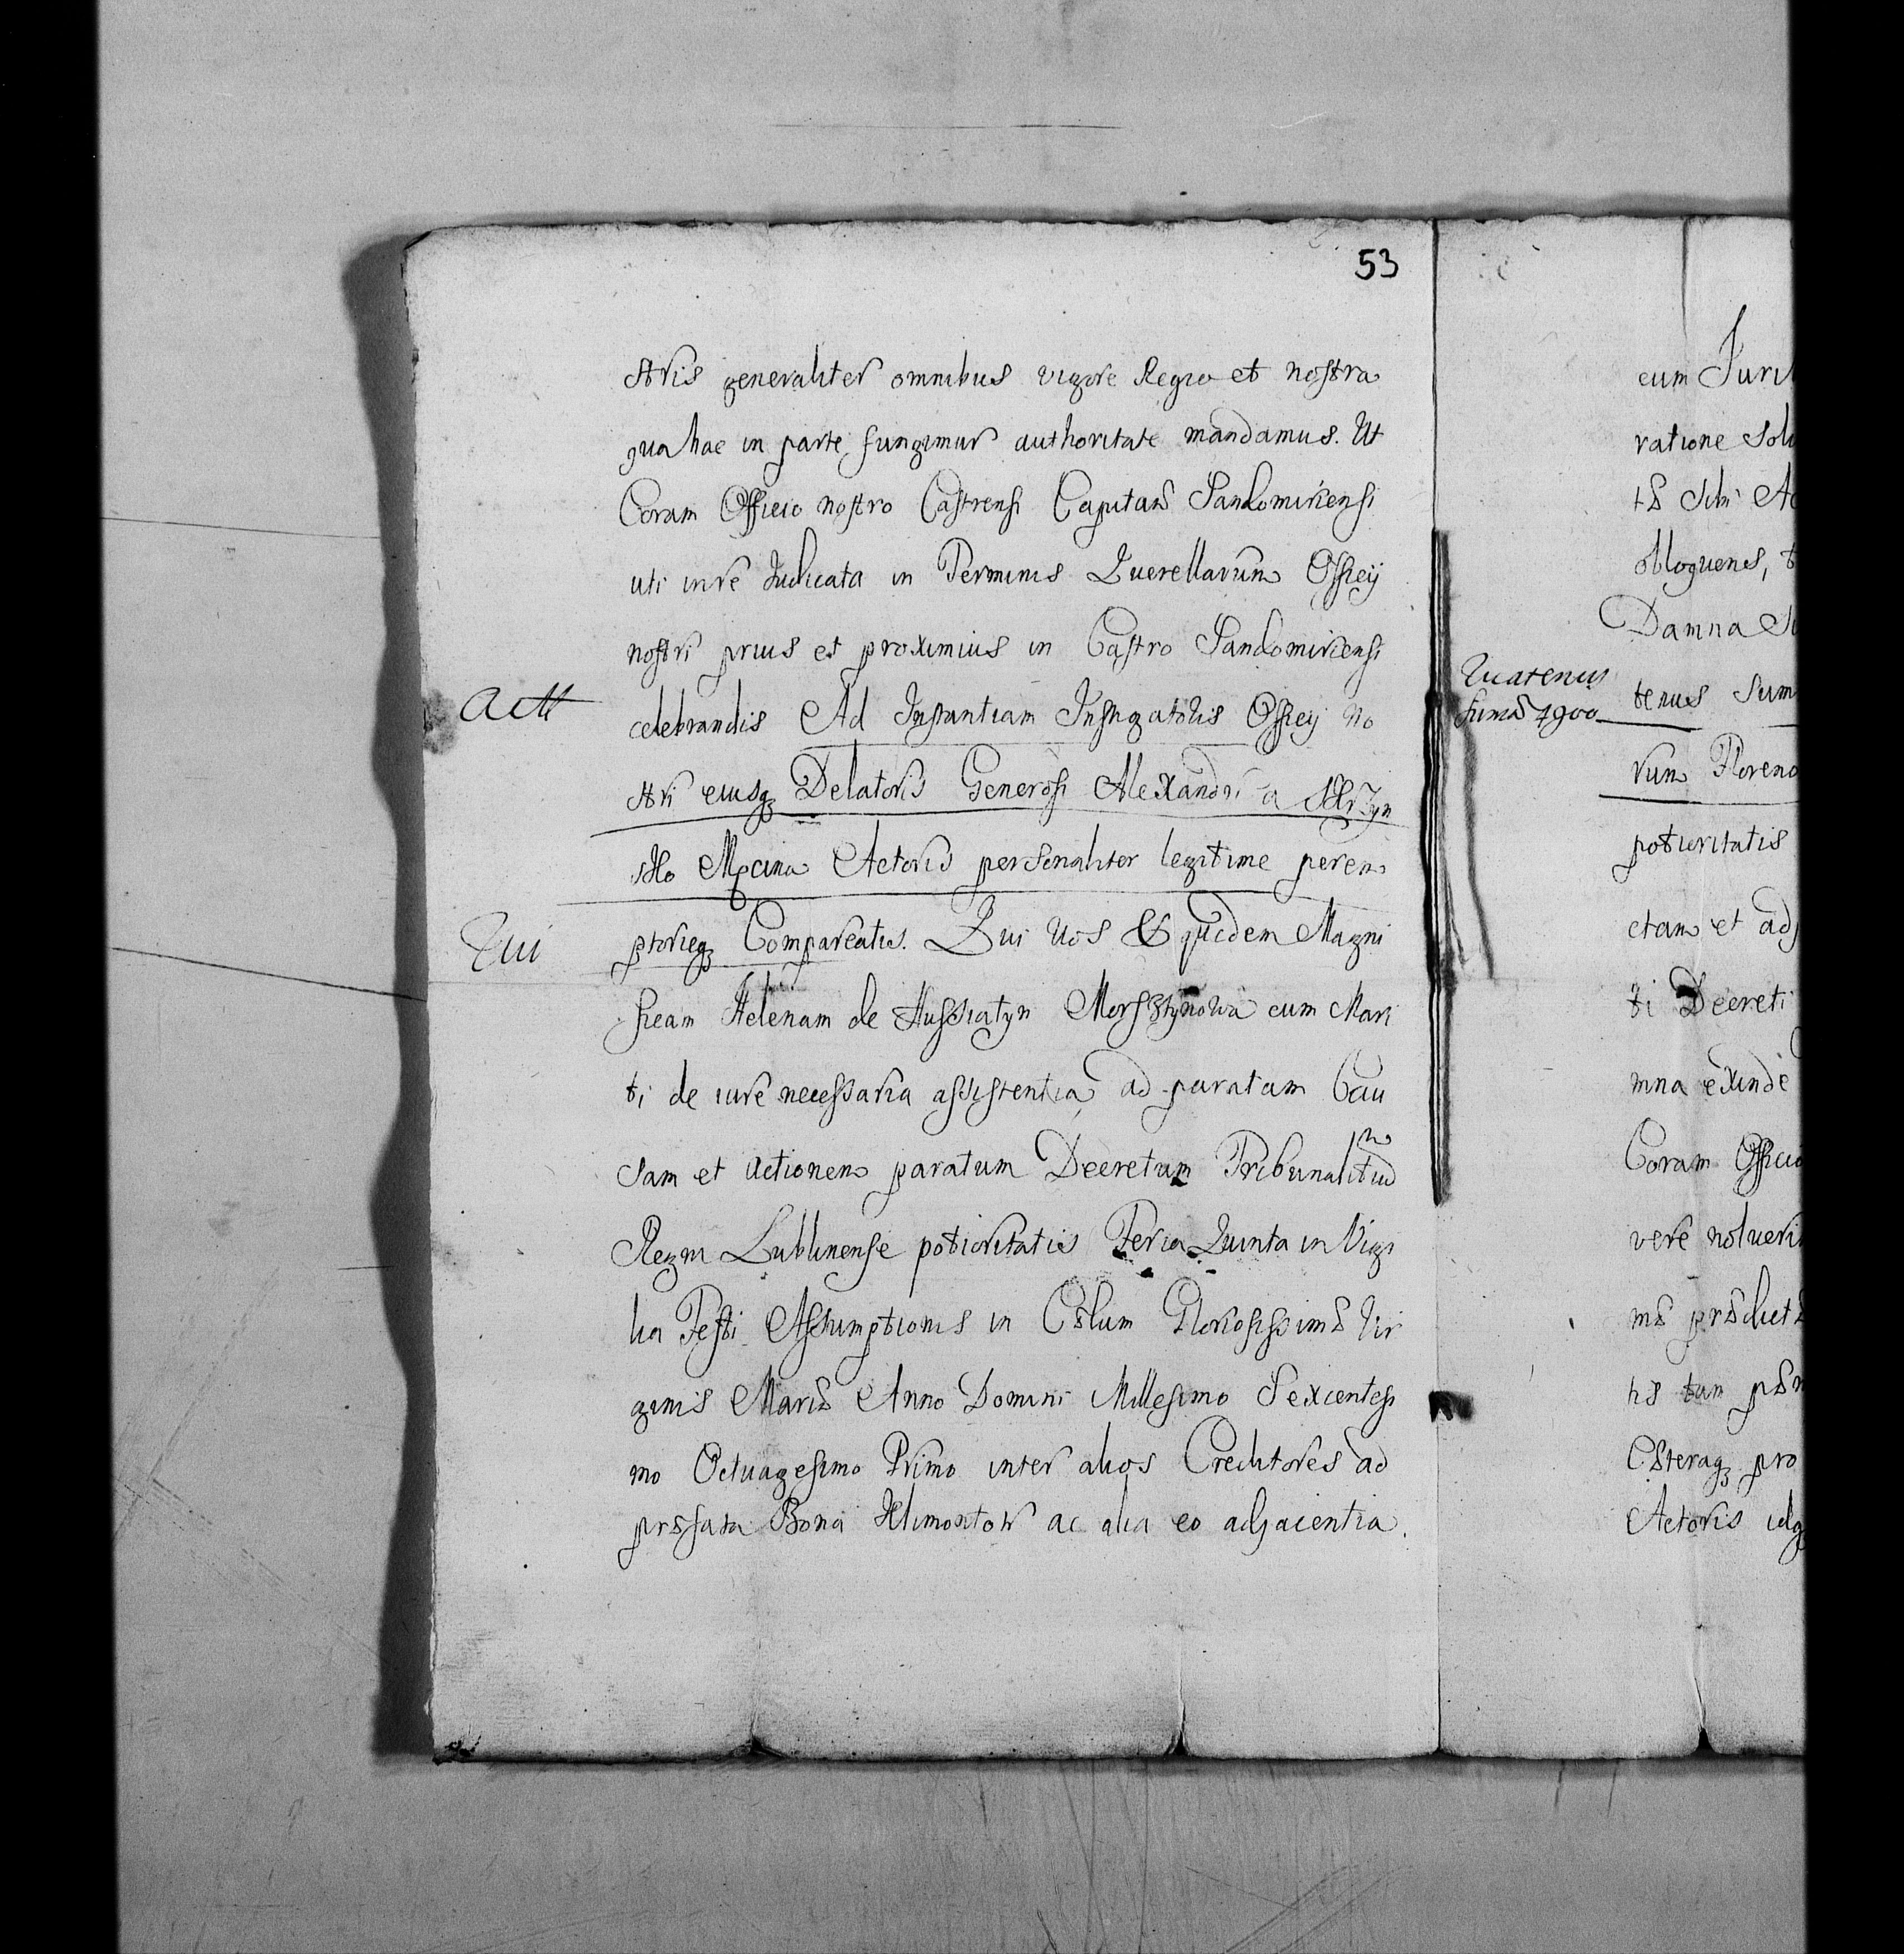 53
stris generaliter omnibus vigore Regia et nostra
qua hac in parte fungimur authoritate mandamus. Ut
Coram Officio nostro Castrensi Capitan Sandomiriensi
uti in re Iudicata in Terminis Querellarum Officij
nostri prius et proximius in Castro Sandomiriensi
Actt
celebrandis Ad Instantiam Instigatoris Officij no
stri eiusq Delatoris Generosi Alexandri a
Mecina Actoris personaliter legitime perem
Qui
ptorieq Compareatis. Qui Vos & quidem Magni
ficam Helenam de Hussiatyn Morsztynowa cum Mari
ti de iure necessaria assistentia ad paratam Cau
sam et actionem paratum Decretum Tribunalitium
Regni Lublinense potioritatis Feria Quinta in Vigi
lia Festi Assumptionis in Cælum Gloriosissimæ Vir
ginis Mariæ Anno Domini Millesimo Sexcentesi
mo Octuagesimo Primo inter alios Creditores ad
præfata Bona Klimontow ac alia eo adjacentia.
eum Juri
ratione Solu
tæ Sibi Ac
obloquens, t
Damna Su
Quatenus
sumæ 4900
tenus Sum
rum Floreno
potioritatis
ctam et adj
ti Decreti
mna exinde
Coram Officio
vere nolueri
mæ prædictæ
Cæteraq pro
Actoris idq